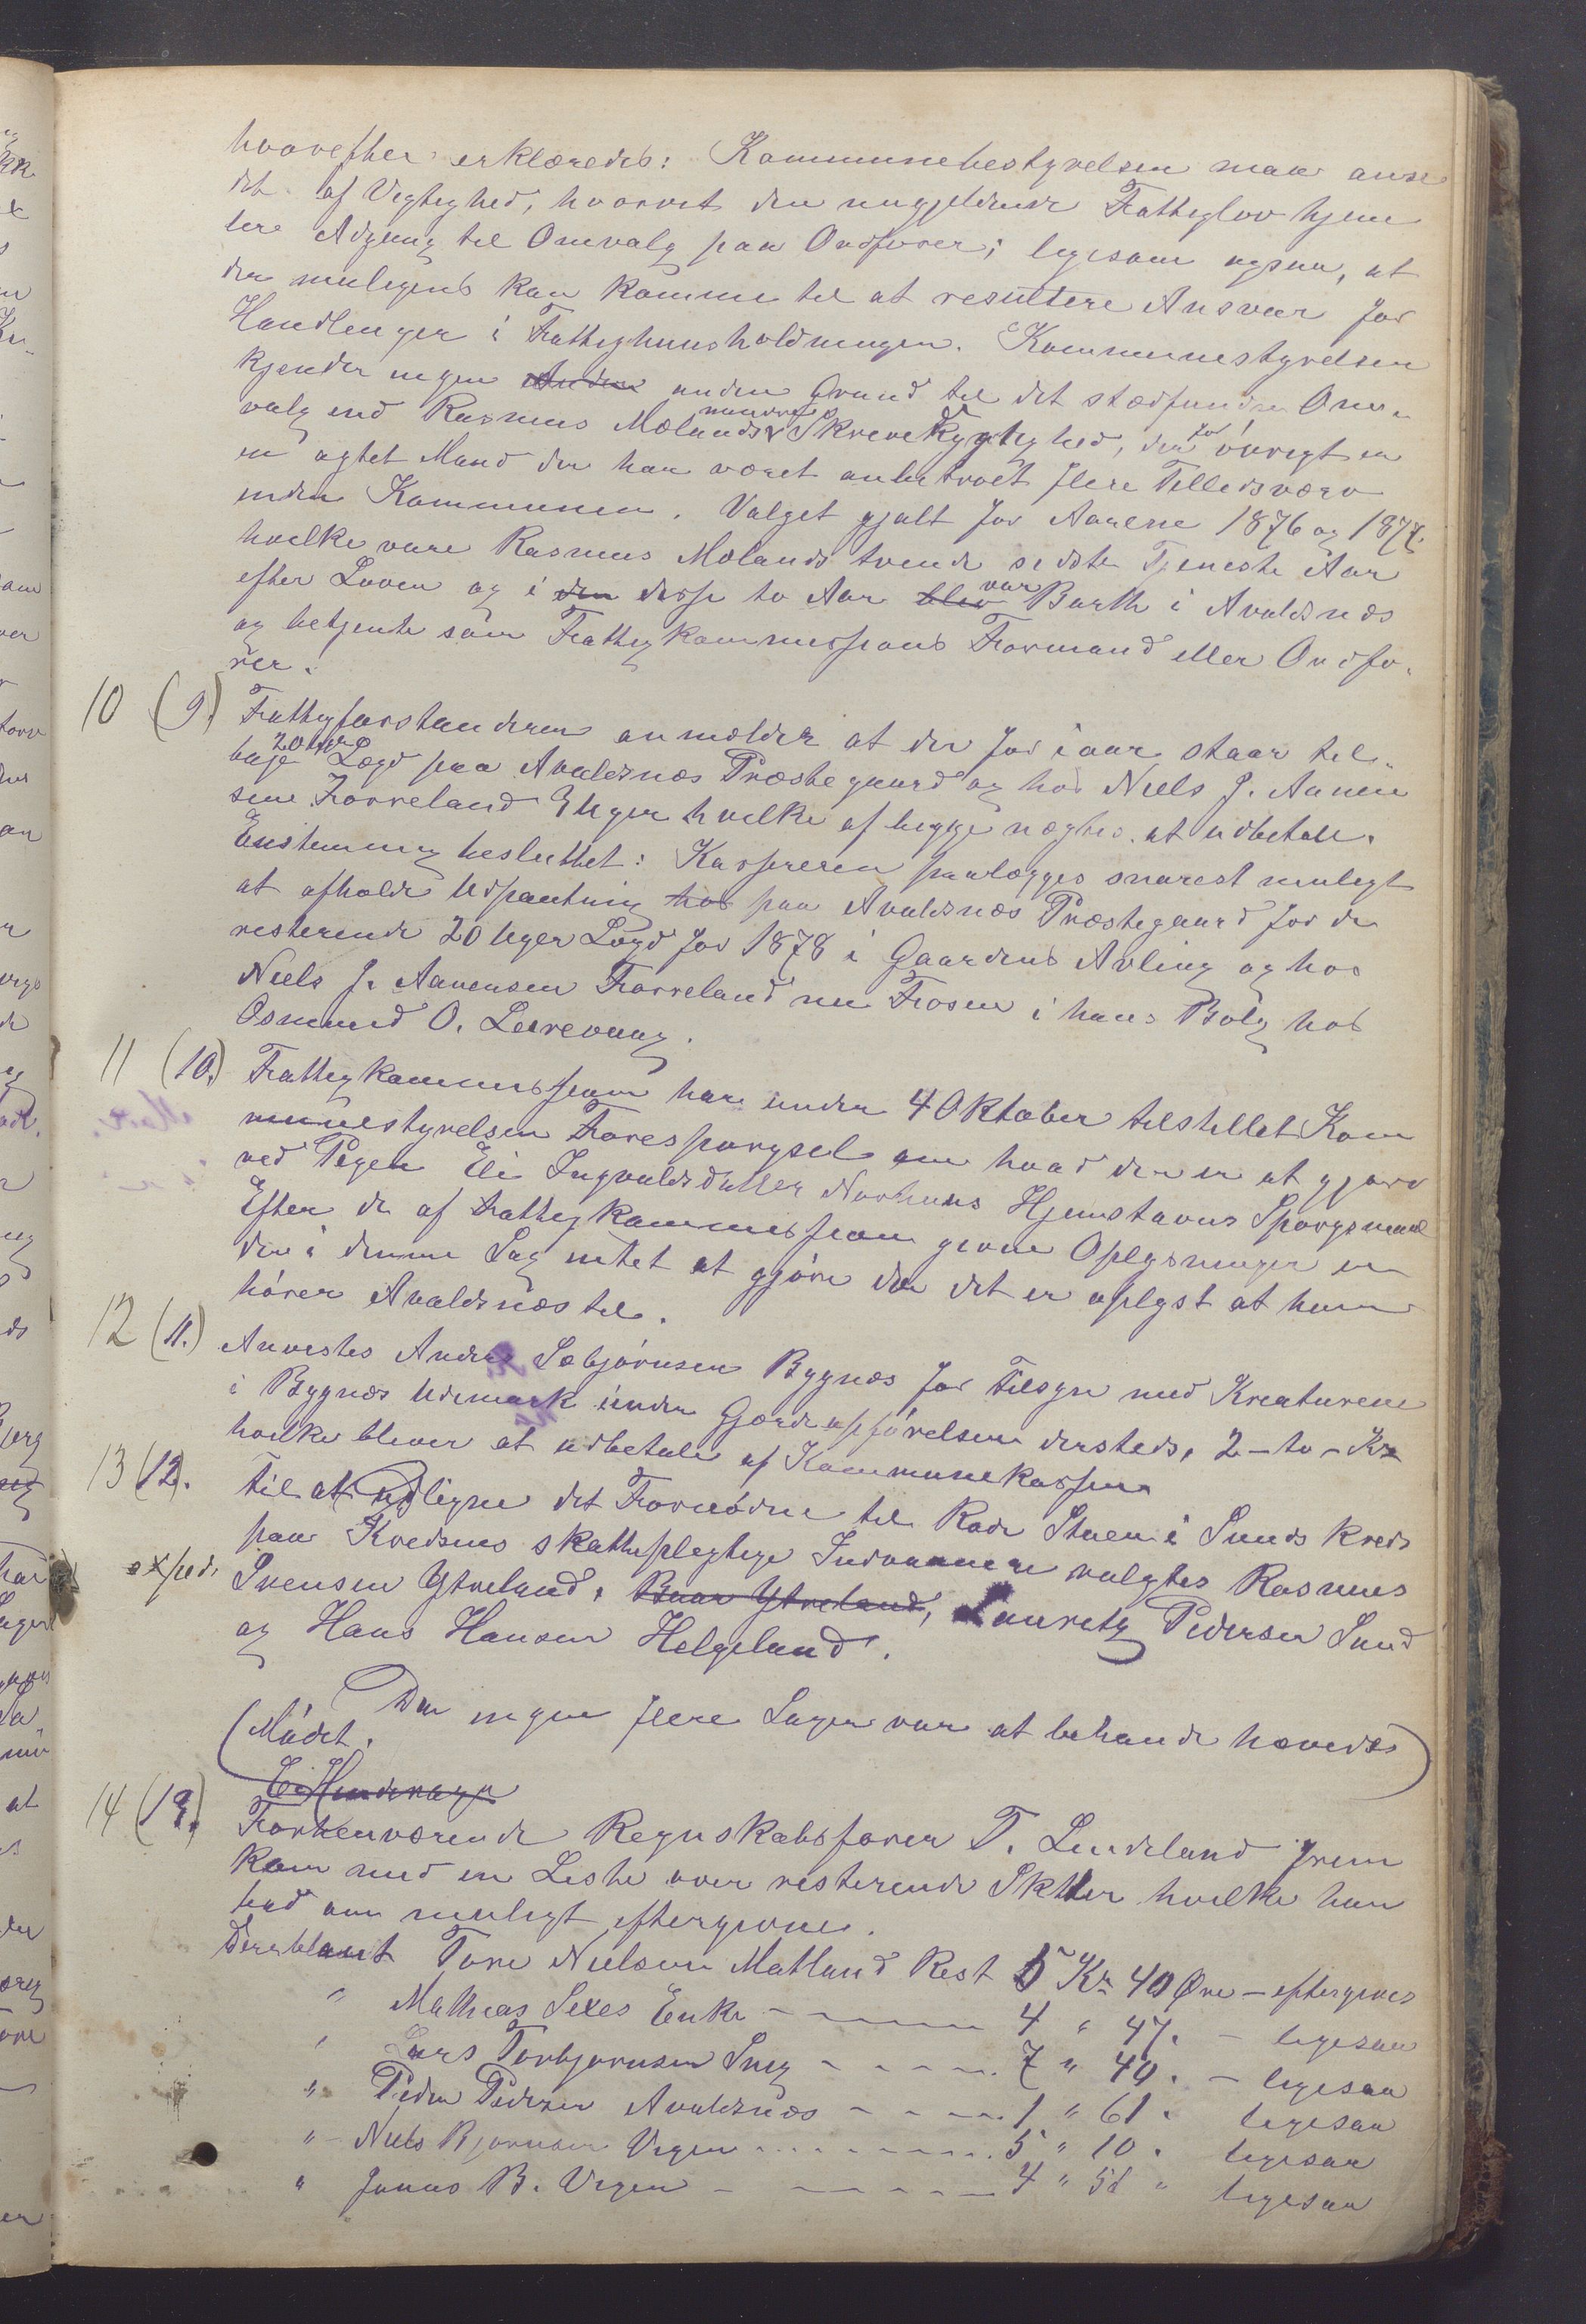 hvorefter erklæredes: Kommunebestyrelsen maa anse
det af Vigtighed, hvorvit den nugjeldende Fattiglov hjem
lere Adgang til Omvalg paa Ordfører; ligesom ogsaa, at
der muligens kan komme til at resultere Ansvar for
Handlinger i Fattighuusholdningen. Kommunestyrelsen
kjender ingen anden Grund til det stedfundne Om-
valg end Rasmus Mølands mindre Skrivekyghtighed, der for øvrigt er
en agtet Mand der har været anbetroet flere Tillidsværv
inden Kommunen. Valget gjalt for Aarene 1876 og 1877.
hvilke vare Rasmus Mølands tvende sidste Tjeneste Aar
efter Loven og i den disse to Aar blev var Barth i Avaldsnæs
og betjente som Fattigkommissions Formand eller Ordfø-
rer.
10 (9.) Fattigforstanderen anmelder at der for iaar staar til-
bage 20 Uger Lægd paa Avaldsnæs Præstegaard og hos Niels J. Aanen
sen Forreland Uger hvilke af begge nægtes at udbetale.
Enstemmig besluttet: Kassereren paalægges snarest muligt
at afholde Udpantning hos paa Avaldsnæs Præstegaard for de
resterende 20 Uger Lægd for 1878 i Gaardens Avling og hos
Niels J. Aanensen Forreland nu Frosen i hans Bolig hos
Osmund O. Leirevaag.
11 (10.) Fattigkommissionen har under 4 Oktober tilstillet Kom
munestyrelsen Forespørgsel om hvad der er at gjøre
ved Pigen Eli Ingvaldsdatter Norhuus Hjemstavns Spørgsmaal
Efter de af Fattigkommissionen givne Oplysninger er
der i denne Sag intet at gjøre da det er oplyst at hun
hører Avaldsnæs til.
12 (11.) Anvistes Anders Sebjørnsen Bygnæs for Tilsyn med Kreaturene
i Bygnæs Udmark under Gjærdeopførelsen dersteds, 2 - to - Kr
hvilke bliver at udbetale af Kommunekassen
13 (12.) Til at udligne det Fornødne til Rode Stuen i Sunds Kreds
paa Kredsens skattepligtige Indvaanere valgtes Rasmus
exped. Svensen Ytreland, Baar Ytreland, Lauritz Pedersen Sund
og Hans Hansen Helgeland.
Da ingen flere Sager var at behandle hævedes
Mødet.
14 (13.) Forhenværende Regnskabsfører T. Lindeland frem
kom med en Liste over resterende Skatter hvilke han
bad om muligt eftergivne.
Deriblant Tore Nielsen Matland Rest 5 Kr 40 Øre - eftergives
" Mathias Sexes Enke - - - 4 " 47. - ligesaa
" Lars Torbjørnsen Snig - - - 7 " 40. - ligesaa
" Peder Pedersen Avaldsnæs - - - 1 " 61. ligesaa
" Niels Bjørnsen Vigen - - - 5 " 10. ligesaa
" Jonas B. Vigen - - - 4 " 58 " ligesaa